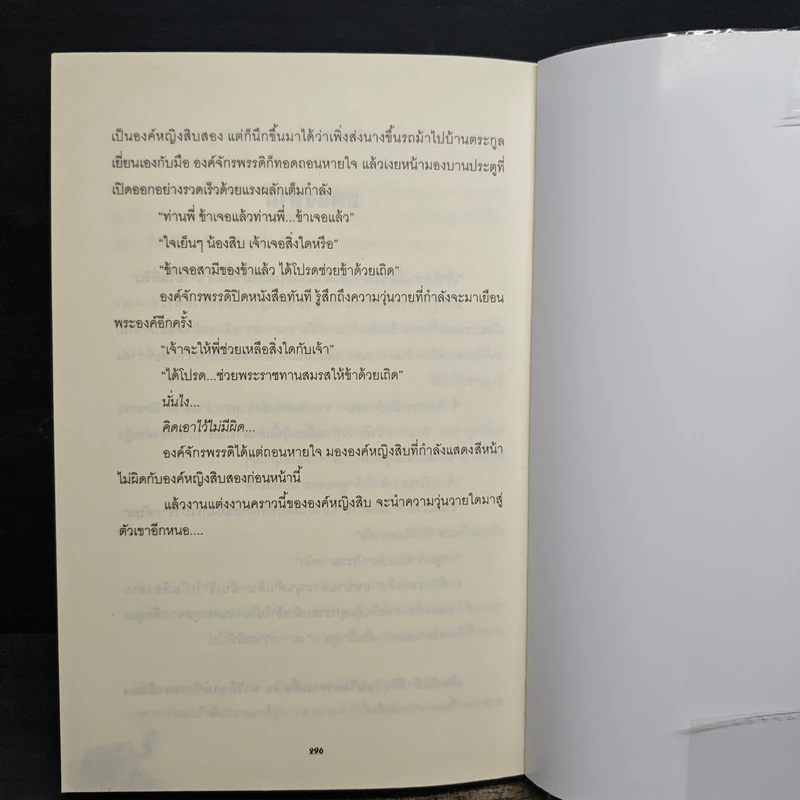 เป็นองค์หญิงสิบสอง แต่ก็นึกขึ้นมาได้ว่าเพิ่งส่งนางขึ้นรถม้าไปบ้านตระกูล
เยี่ยนเองกับมือ องค์จักรพรรดิก็ทอดถอนหายใจ แล้วเงยหน้ามองบานประตูที่
เปิดออกอย่างรวดเร็วด้วยแรงผลักเต็มกำลัง
“ท่านพี่ ข้าเจอแล้วท่านพี่...ข้าเจอแล้ว”
“ใจเย็นๆ น้องสิบ เจ้าเจอสิ่งใดหรือ”
“ข้าเจอสามีของข้าแล้ว ได้โปรดช่วยข้าด้วยเถิด”
องค์จักรพรรดิปิดหนังสือทันที รู้สึกถึงความวุ่นวายที่กำลังจะมาเยือน
พระองค์อีกครั้ง
“เจ้าจะให้พี่ช่วยเหลือสิ่งใดกับเจ้า”
“ได้โปรด...ช่วยพระราชทานสมรสให้ข้าด้วยเถิด”
นั่นไง...
คิดเอาไว้ไม่มีผิด...
องค์จักรพรรดิได้แต่ถอนหายใจ มององค์หญิงสิบที่กำลังแสดงสีหน้า
ไม่ผิดกับองค์หญิงสิบสองก่อนหน้านี้
แล้วงานแต่งงานคราวนี้ขององค์หญิงสิบ จะนำความวุ่นวายใดมาสู่
ตัวเขาอีกหนอ....
296